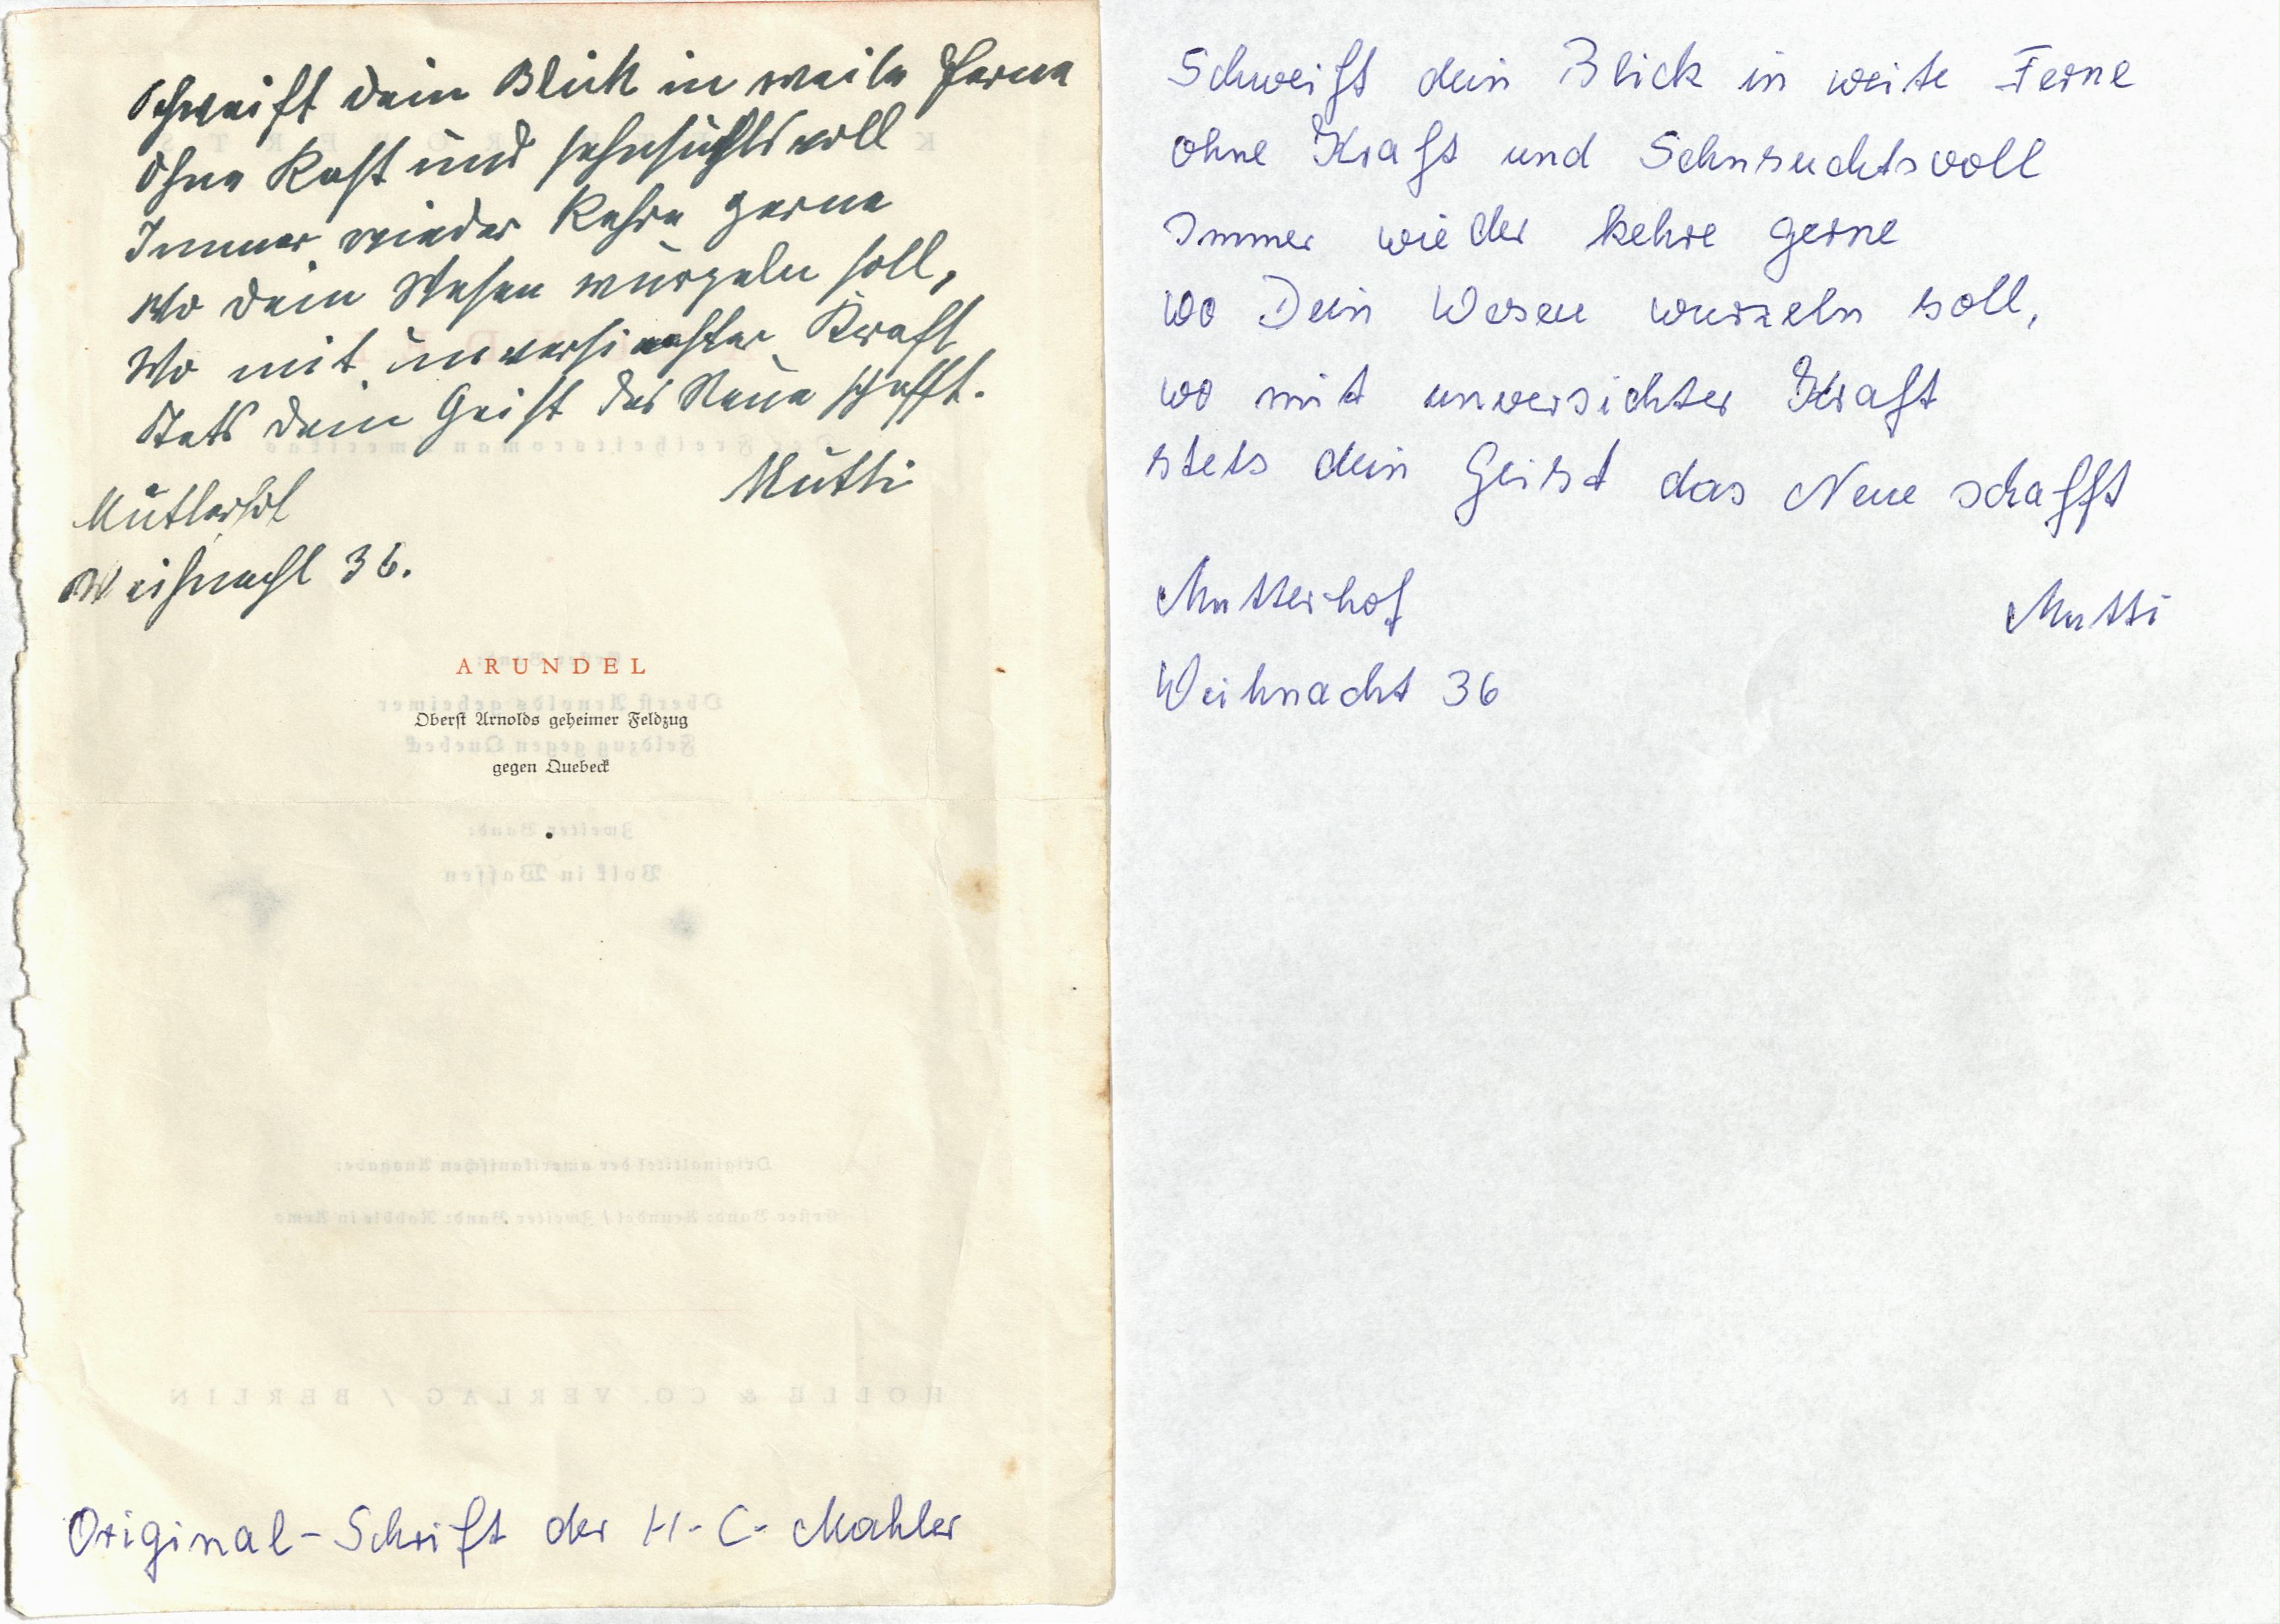 Schweift dein Blick in weite Ferne
Ohne Rast und sehnsuchtsvoll
Immer wieder kehre gerne
Wo dein Wesen wurzeln soll,
Wo mit unversiechter Kraft
Stets dein Geist das Neue schafft.
Mutti
Mutterhof
Weihnacht 36.
ARUNDEL
Oberst Arnolds geheimer Feldzug
gegen Quebeck
Original-Schrift der H-C- Mahler
Schweift dein Blick in weite Ferne
ohne Kraft und Sehnsuchtsvoll
Immer wieder kehre gerne
wo Dein Wesen wurzeln soll,
wo mit unversichter Kraft
stets dein Geist das Neue schafft
Mutterhof Mutti
Weihnacht 36